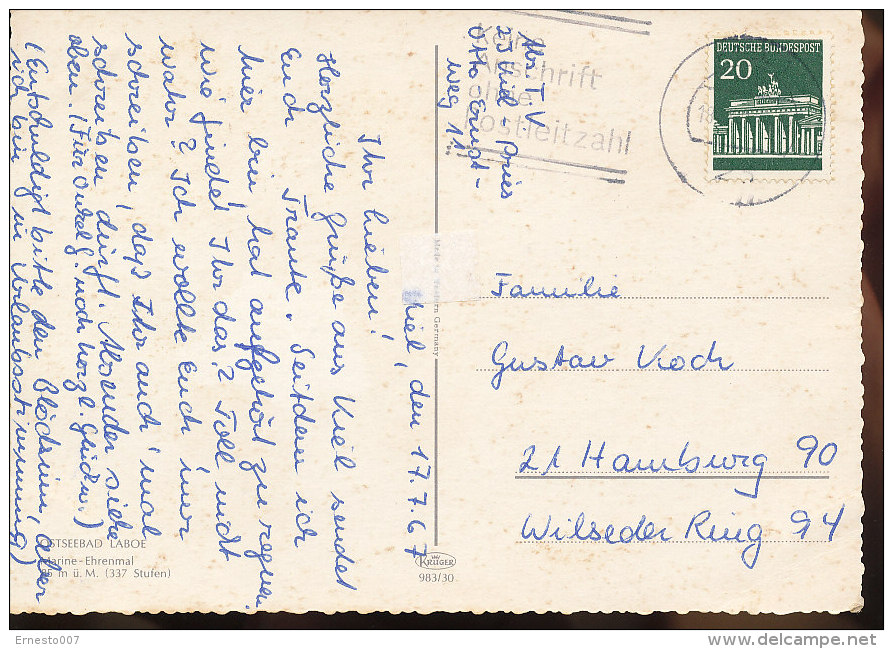 Kiel, den 17.7.67
Ihr lieben!
Herzliche Grüße aus Kiel sendet
Euch Traute. Seitdem ich
hier bin hat aufgehört zu regnen.
Wie findet Ihr das? Toll nicht
wahr? Ich wollte Euch nur
schreiben, daß Ihr auch mal
schreiben dürft. Absender siehe
oben. (Für Onkel G. noch herzl. Grüße.)
(Entschuldigt bitte den Blödsinn, aber
ich bin in Urlaubsstimmung)
Abs. T. V
23 Kiel-Pries
Otto Ernst-
weg 11
Keine
Anschrift
ohne
Postleitzahl
DEUTSCHE BUNDESPOST
20
Familie
Gustav Koch
21 Hamburg 90
Wilseder Ring 94
Made in Western Germany
OSTSEEBAD LABOE
Marine-Ehrenmal
85 m ü. M. (337 Stufen)
KRÜGER
983/30
Ernesto007
delcampe.net